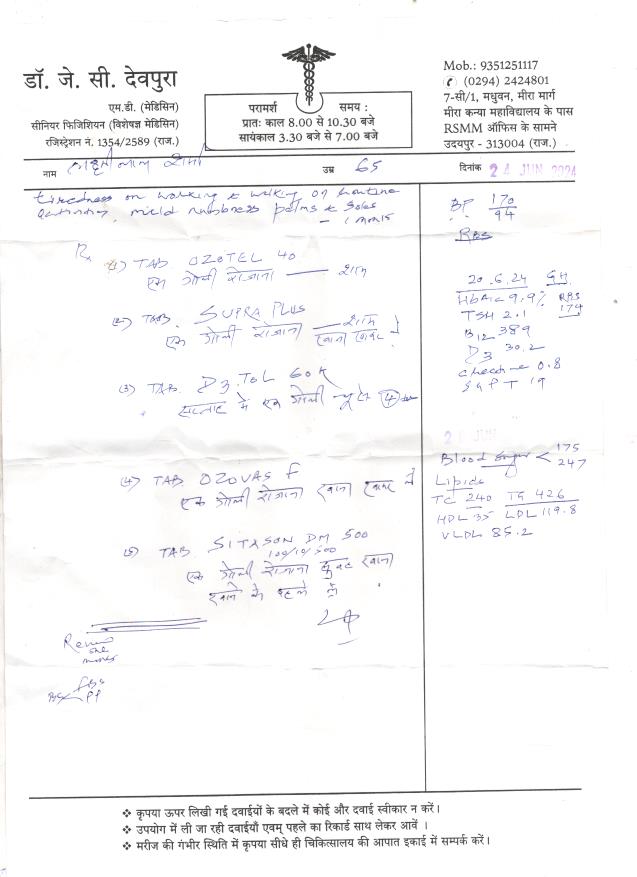 डॉ. जे. सी. देवपुरा
एम.डी. (मेडिसिन)
सीनियर फिजिशियन (विशेषज्ञ मेडिसिन)
रजिस्ट्रेशन नं. 1354/2589 (राज.)
परामर्श समय :
प्रातः काल 8.00 से 10.30 बजे
सायंकाल 3.30 बजे से 7.00 बजे
Mob.: 9351251117
(0294) 2424801
7-सी/1, मधुवन, मीरा मार्ग
मीरा कन्या महाविद्यालय के पास
RSMM ऑफिस के सामने
उदयपुर - 313004 (राज.)
नाम शर्मा उम्र 65 दिनांक 24 JUN 2024
tiredness on working & walking or routine
mild numbness palms & soles
BP 170/94
RBS
Rx
(1) TAB OZOTEL 40
एक गोली रोजाना — शाम
(2) TAB. SUPRA PLUS
एक गोली रोजाना — शाम
खाना खाकर लें
(3) TAB D3 TOL 60K
सप्ताह में एक गोली
(4) TAB OZOVAS F
एक गोली रोजाना खाना खाकर लें
(5) TAB SITASON DM 500
100/10/500
एक गोली रोजाना सुबह खाना
खाने से पहले लें
20.6.24 GH
HbA1c 9.9% RBS 174
TSH 2.1
B12 389
D3 30.2
0.8
SGPT 19
JUN
Blood sugar < 175
247
Lipids
TC 240 TG 426
HDL 35 LDL 119.8
VLDL 85.2
Review
one
month
BS< FBS
PP
❖ कृपया ऊपर लिखी गई दवाईयों के बदले में कोई और दवाई स्वीकार न करें।
❖ उपयोग में ली जा रही दवाईयाँ एवम् पहले का रिकार्ड साथ लेकर आवें ।
❖ मरीज की गंभीर स्थिति में कृपया सीधे ही चिकित्सालय की आपात इकाई में सम्पर्क करें।